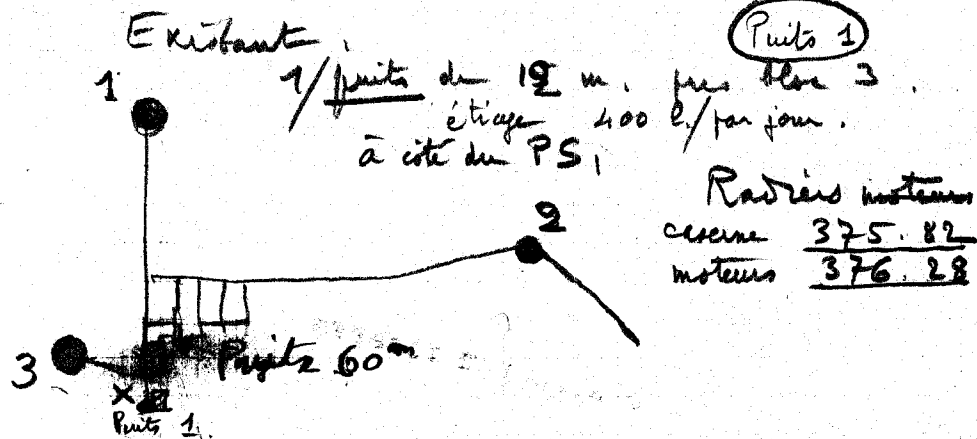 Existant.
Puits 1
1/ puits de 12 m. près bloc 3.
étiage 400 l./par jour.
à côté du PS,
1
Radiers moteurs
2
caserne 375.82
moteurs 376.28
3
Puits 60 m
×
Puits 1.